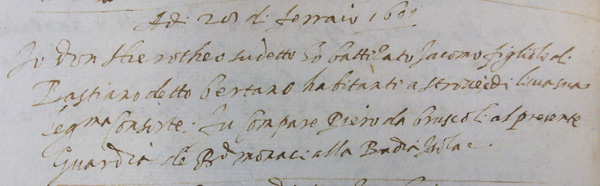 Adi 28 di ferraio
Io Don Hierotheo sudetto ho battizato Jacomo figliolo di
Bastiano detto bertano habitanti a di sua
legma Consorte. fu Compare Piero da bruscoli al presente
Guardia de Rdi monaci alla Badia